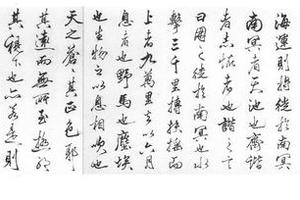 海運則將徙於南冥
南冥者天池也齊諧
者志怪者也諧之言
曰鵬之徙於南冥也水
擊三千里摶扶搖而
上者九萬里去以六月
息者也野馬也塵埃
也生物之以息相吹也
天之蒼蒼其正色耶
其遠而無所至極耶
其視下也亦若是則